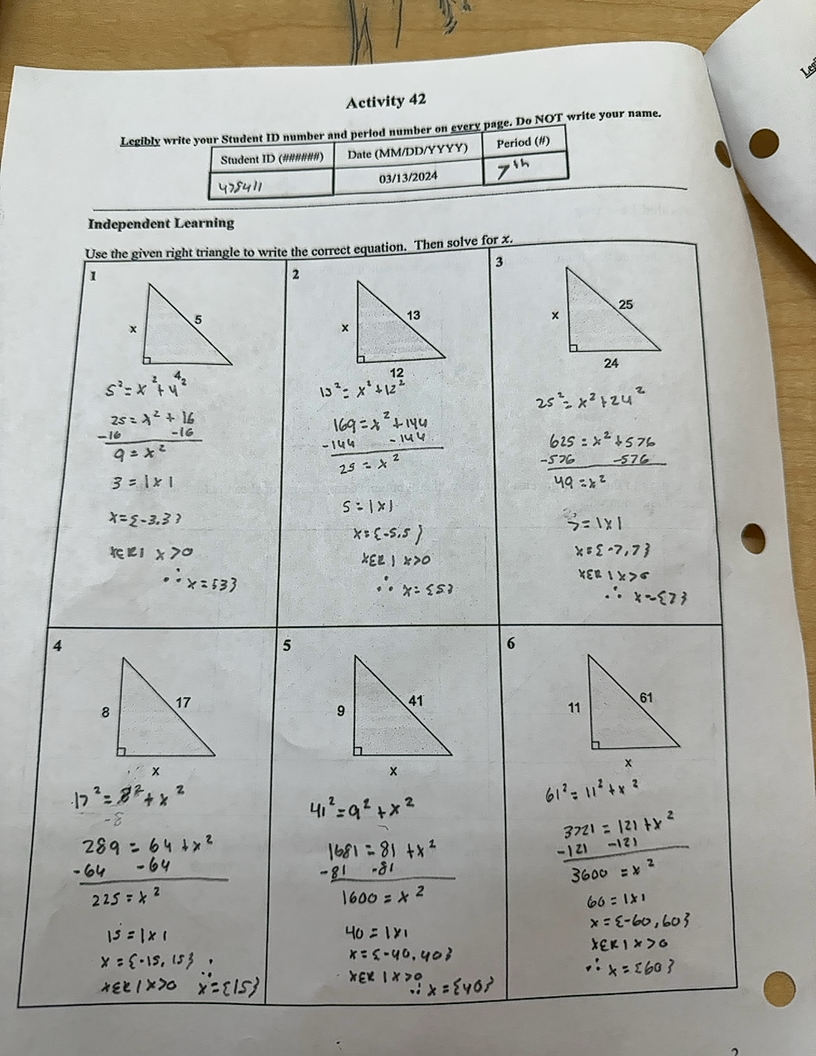 Activity 42
Legibly write your Student ID number and period number on every page. Do NOT write your name.
Student ID (######) Date (MM/DD/YYYY) Period (#)
478411 03/13/2024 7th
Independent Learning
Use the given right triangle to write the correct equation. Then solve for x.
1
x 5
4
5² = x² + 4²
25 = x² + 16
-16 -16
9 = x²
3 = |x|
x = {-3,3}
x∈ℝ | x>0
∴ x = {3}
2
x 13
12
13² = x² + 12²
169 = x² + 144
-144 -144
25 = x²
5 = |x|
x = {-5,5}
x∈ℝ | x>0
∴ x = {5}
3
x 25
24
25² = x² + 24²
625 = x² + 576
-576 -576
49 = x²
= |x|
x = {-7,7}
x∈ℝ | x>0
∴ x = {7}
4
8 17
x
17² = 8² + x²
-8
289 = 64 + x²
-64 -64
225 = x²
15 = |x|
x = {-15, 15}
x∈ℝ | x>0 ∴ x = {15}
5
9 41
x
41² = 9² + x²
1681 = 81 + x²
-81 -81
1600 = x²
40 = |x|
x = {-40,40}
x∈ℝ | x>0
∴ x = {40}
6
11 61
x
61² = 11² + x²
3721 = 121 + x²
-121 -121
3600 = x²
60 = |x|
x = {-60, 60}
x∈ℝ | x>0
∴ x = {60}